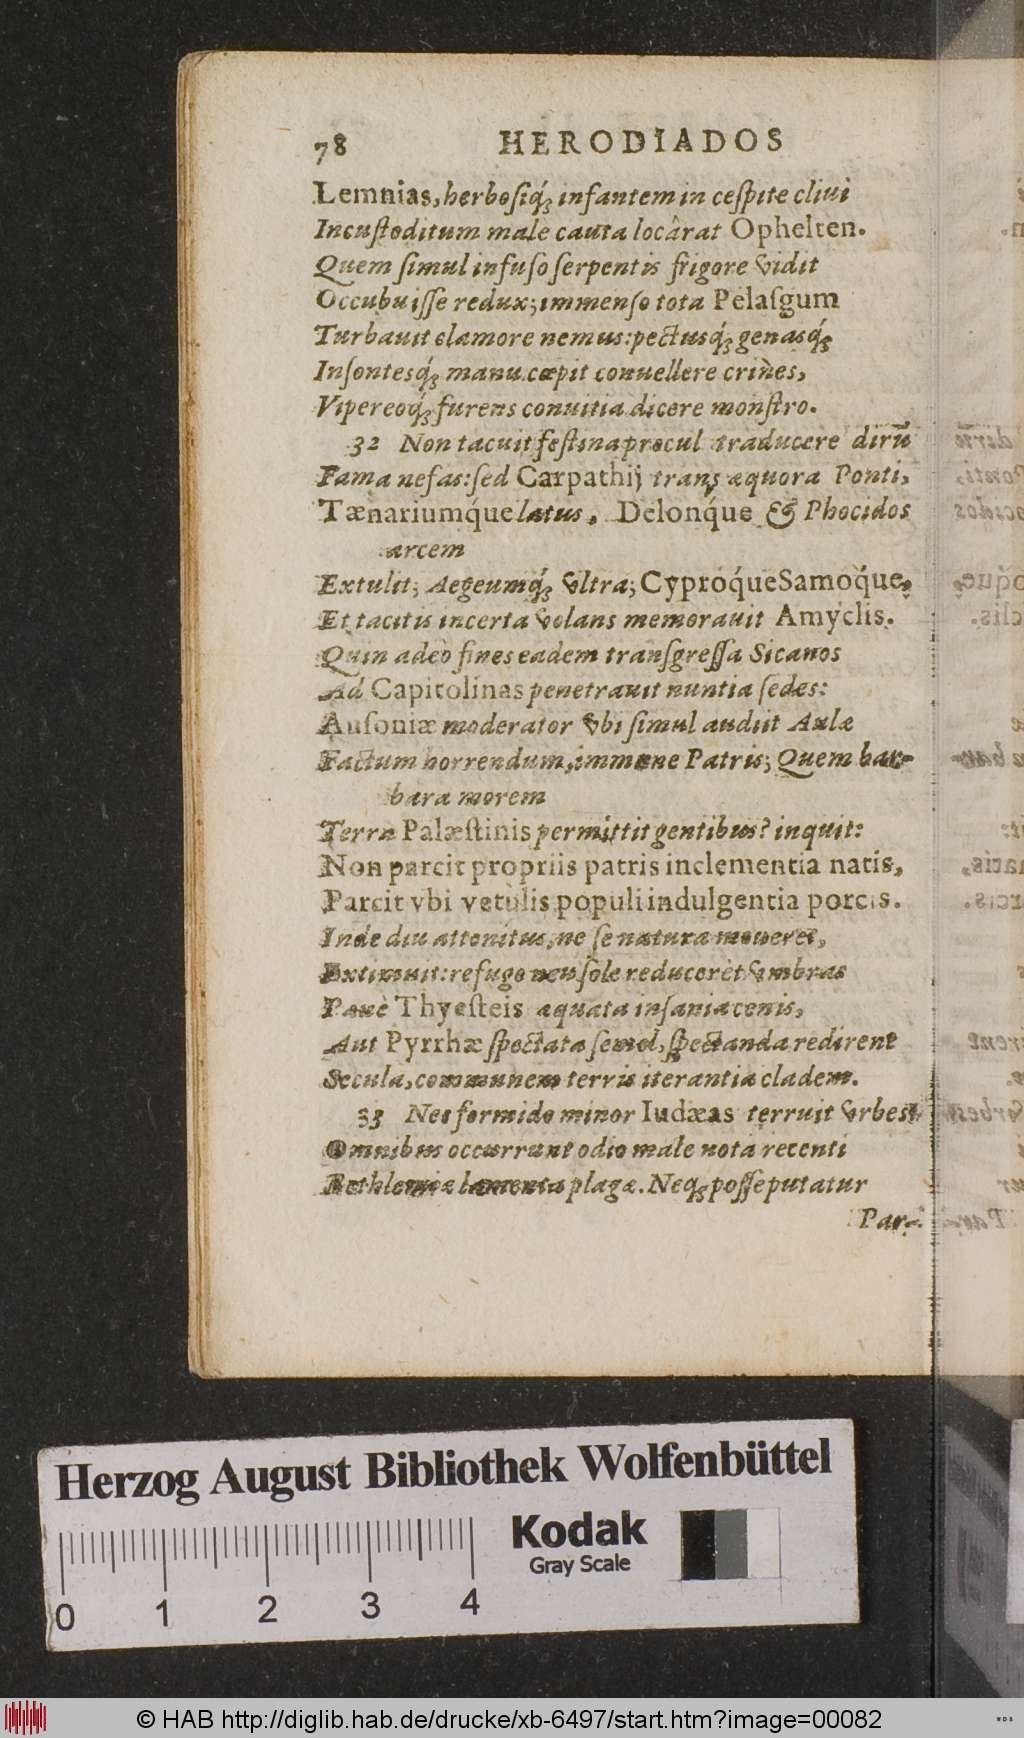 78 HERODIADOS
Lemnias, herbosiq́; infantem in cespite cliui
Incustoditum male cauta locârat Ophelten.
Quem simul infuso serpentis frigore vidit
Occubuisse redux; immenso tota Pelasgum
Turbauit clamore nemus: pectusq́; genasq́;
Insontesq́; manu cœpit conuellere crines,
Vipereoq́; furens conuitia dicere monstro.
32 Non tacuit festina procul traducere dirũ
Fama nefas: sed Carpathij trans æquora Ponti,
Tænariumq́ue latus, Delonq́ue & Phocidos
arcem
Extulit; Aegeumq́; vltra; Cyproq́ue Samoq́ue,
Et tacitis incerta volans memorauit Amyclis.
Quin adeò fines eadem transgressa Sicanos
Ad Capitolinas penetrauit nuntia sedes:
Ausoniæ moderator vbi simul audiit Aulæ
Factum horrendum, immane Patris; Quem bar-
bara morem
Terra Palæstinis permittit gentibus? inquit:
Non parcit propriis patris inclementia natis,
Parcit vbi vetulis populi indulgentia porcis.
Inde diu attonitus, ne se natura moueret,
Extimuit: refugo neu sole reduceret vmbras
Pœnè Thyesteis æquata insania cenis,
Aut Pyrrhæ spectata semel, spectanda redirent
Secula, communem terris iterantia cladem.
33 Nec formido minor Iudæas terruit vrbes:
Omnibus occurrunt odio male nota recenti
Bethlemiæ lamenta plagæ. Neq; posse putatur
Par-
Herzog August Bibliothek Wolfenbüttel
Kodak
Gray Scale
0 1 2 3 4
© HAB http://diglib.hab.de/drucke/xb-6497/start.htm?image=00082